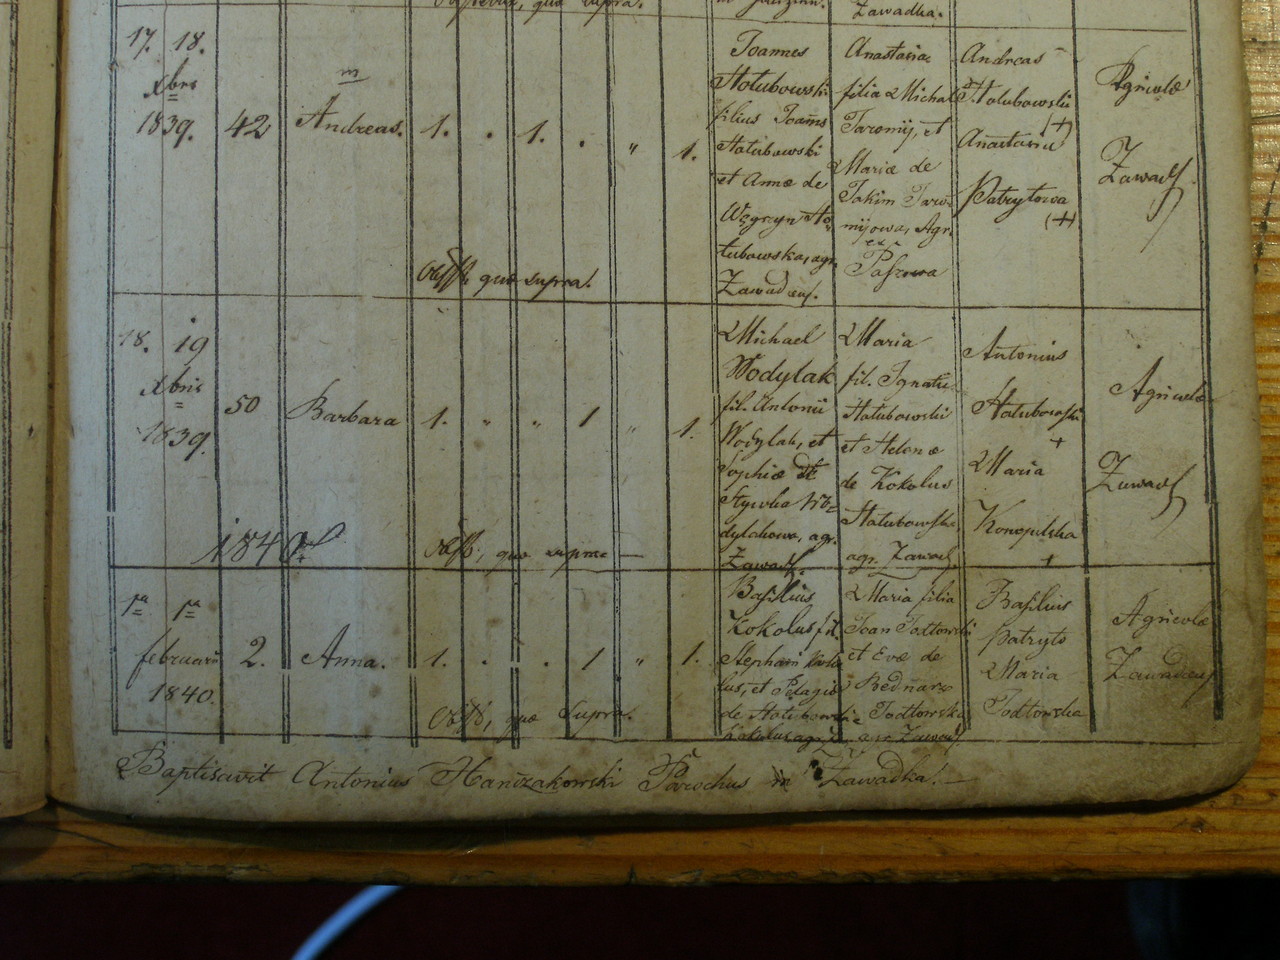 Zawadka.
17. 18.
Xbris
1839.
42
m
Andreas.
1. . 1. . " 1.
Obst. quae supra.
Joannes
Hołubowski
filius Joannis
Hołubowski
et Annae de
Węgrzyn Ho
łubowska, agr.
Zawadens.
Anastasia
filia Michae
Jaromij, et
Mariae de
Jakim Jaro
mijowa, Agr.
ex
Andreas
Hołubowski
(+)
Anastasia
Patrytowa
(+)
Agricolae
Zawad
18. 19
Xbris
1839.
50
Barbara
1. " " 1 " 1.
Obst, quae supra —
Michael
Wodylak
fil. Antonii
Wodylak, et
Sophiae de
dylakowa, agr.
Zawad.
Maria
fil. Ignatii
Hołubowski
et Helenae
de Kokolus
Hołubowska
agr. Zawad.
Antonius
Hołubowski
+
Maria
Konopilska
+
Agricolae
Zawad
1840
1a 1a
februarii
1840.
2.
Anna.
1. . . 1 " 1.
Obst, quae supra.
Basilius
Kokolus fil.
Stephani Koko
lus, et Pelagiae
de Hołubowskie
Kokolus agr.
Maria filia
Joan Jodłowski
et Evae de
Bednarz
Jodłowska
agr. Zawad.
Basilius
Patryto
Maria
Jodłowska
Agricolae
Zawadens
Baptisavit Antonius Hanczakowski Parochus in Zawadka. —